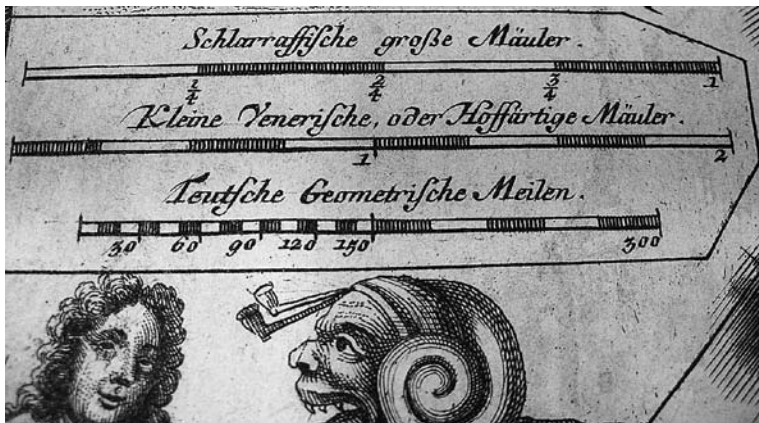 Schlarraffische große Mäuler.
1/4 2/4 3/4 1
Kleine Venerische, oder Hoffärtige Mäuler.
1 2
Teutsche Geometrische Meilen.
30 60 90 120 150 300